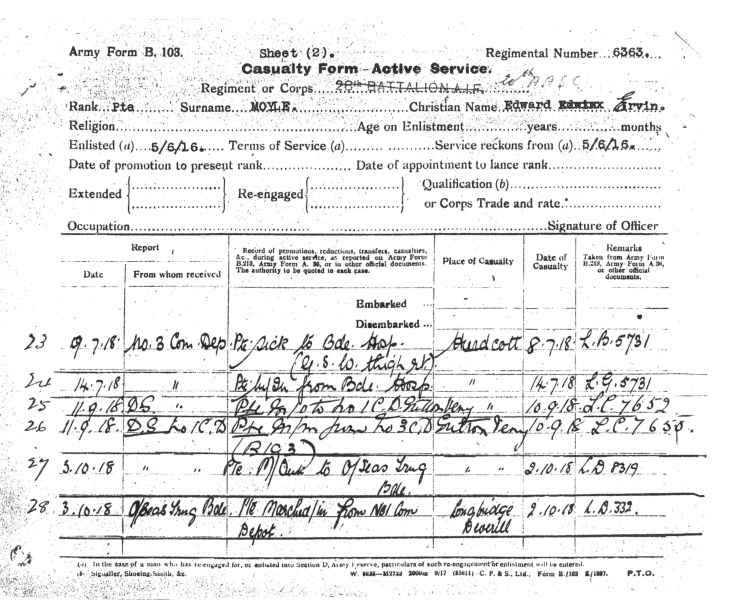 Army Form B. 103. Sheet (2). Regimental Number 6363.
Casualty Form - Active Service.
Regiment or Corps 28th BATTALION A.I.F. 20th AASC
Rank Pte Surname MOYLE. Christian Name Edward Edwinx Ervin.
Religion Age on Enlistment years months
Enlisted (a) 5/6/16. Terms of Service (a) Service reckons from (a) 5/6/16.
Date of promotion to present rank Date of appointment to lance rank
Extended Re-engaged Qualification (b)
or Corps Trade and rate
Occupation Signature of Officer
Report
Date From whom received
Record of promotions, reductions, transfers, casualties, &c., during active service, as reported on Army Form B.213, Army Form A. 36, or in other official documents. The authority to be quoted in each case.
Place of Casualty
Date of Casualty
Remarks
Taken from Army Form B.213, Army Form A. 36, or other official documents.
Embarked ...
Disembarked ...
23 9.7.18 No. 3 Com. Dep. Pte sick to Bde. Hosp. Hurdcott 8.7.18 L.B. 5731
(G.S.W. thigh rt.)
24 14.7.18 " Pte m/in from Bde. Hosp " 14.7.18 L.G. 5731
25 11.9.18 D.S. " Pte m/o to No 1 C.D. Sutton Veny " 10.9.18 L.C. 7652
26 11.9.18. D.S. No 1 C.D Pte m/in from No 3 C.D Sutton Veny 10.9.18 L.C. 7650.
(B1C3)
27 3.10.18 " " Pte. M/Out to O/Seas Trng " " 2.10.18 L.D 8319
Bde.
28 3.10.18 O/Seas Trng Bde. Pte Marched/in from No1 Com Longbridge 2.10.18 L.D. 332.
Depot. Deverill
(a) In the case of a man who has re-engaged for, or enlisted into Section D, Army Reserve, particulars of such re-engagement or enlistment will be entered.
(b) Signaller, Shoeing-Smith, &c. W. 8635—M2733 2000m 9/17 (35611) C. P. & S., Ltd., Form B./103 E/1687. P.T.O.